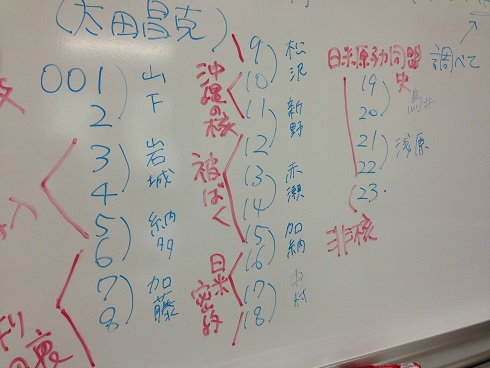 (太田昌克)
001
2
山下
3
4
岩城
5
6
納多
7
8
加藤
9
10
松沢
11
12
新野
13
14
赤瀬
15
16
加納
17
18
沖縄の核
被ばく
日米密約
日米原子力同盟史
調べて
19
20
鳥井
21
22
浅原
23.
非核